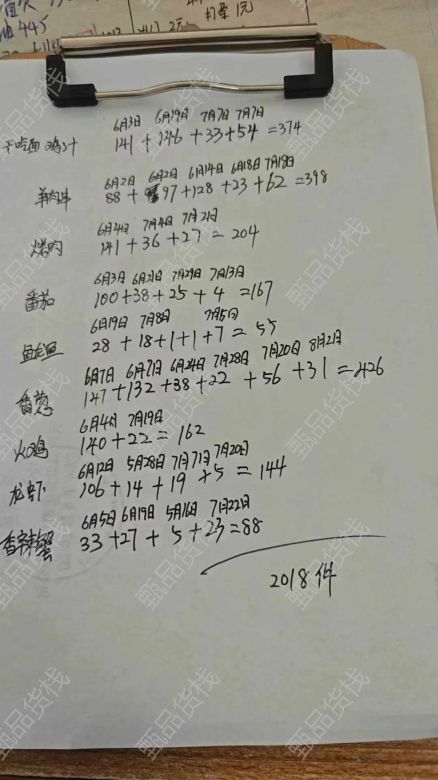 值 445
打票1元
6月3日 6月19日 7月7日 7月7日
干吃面 鸡汁 141+146+33+54=374
6月2日 6月2日 6月14日 6月18日 7月18日
羊肉串 88+97+128+23+62=398
6月4日 7月4日 7月21日
烤肉 141+36+27=204
6月3日 6月21日 7月29日 7月13日
番茄 100+38+25+4=167
6月19日 7月8日 7月5日
鱼龙鱼 28+18+1+1+7=55
6月7日 6月71日 6月24日 7月28日 7月20日 8月2日
香葱 147+132+38+22+56+31=426
6月4日 7月19日
火鸡 140+22=162
6月12日 5月28日 7月71日 7月20日
龙虾 106+14+19+5=144
6月5日 6月19日 5月16日 7月22日
香辣蟹 33+27+5+23=88
2018件
甄品货栈